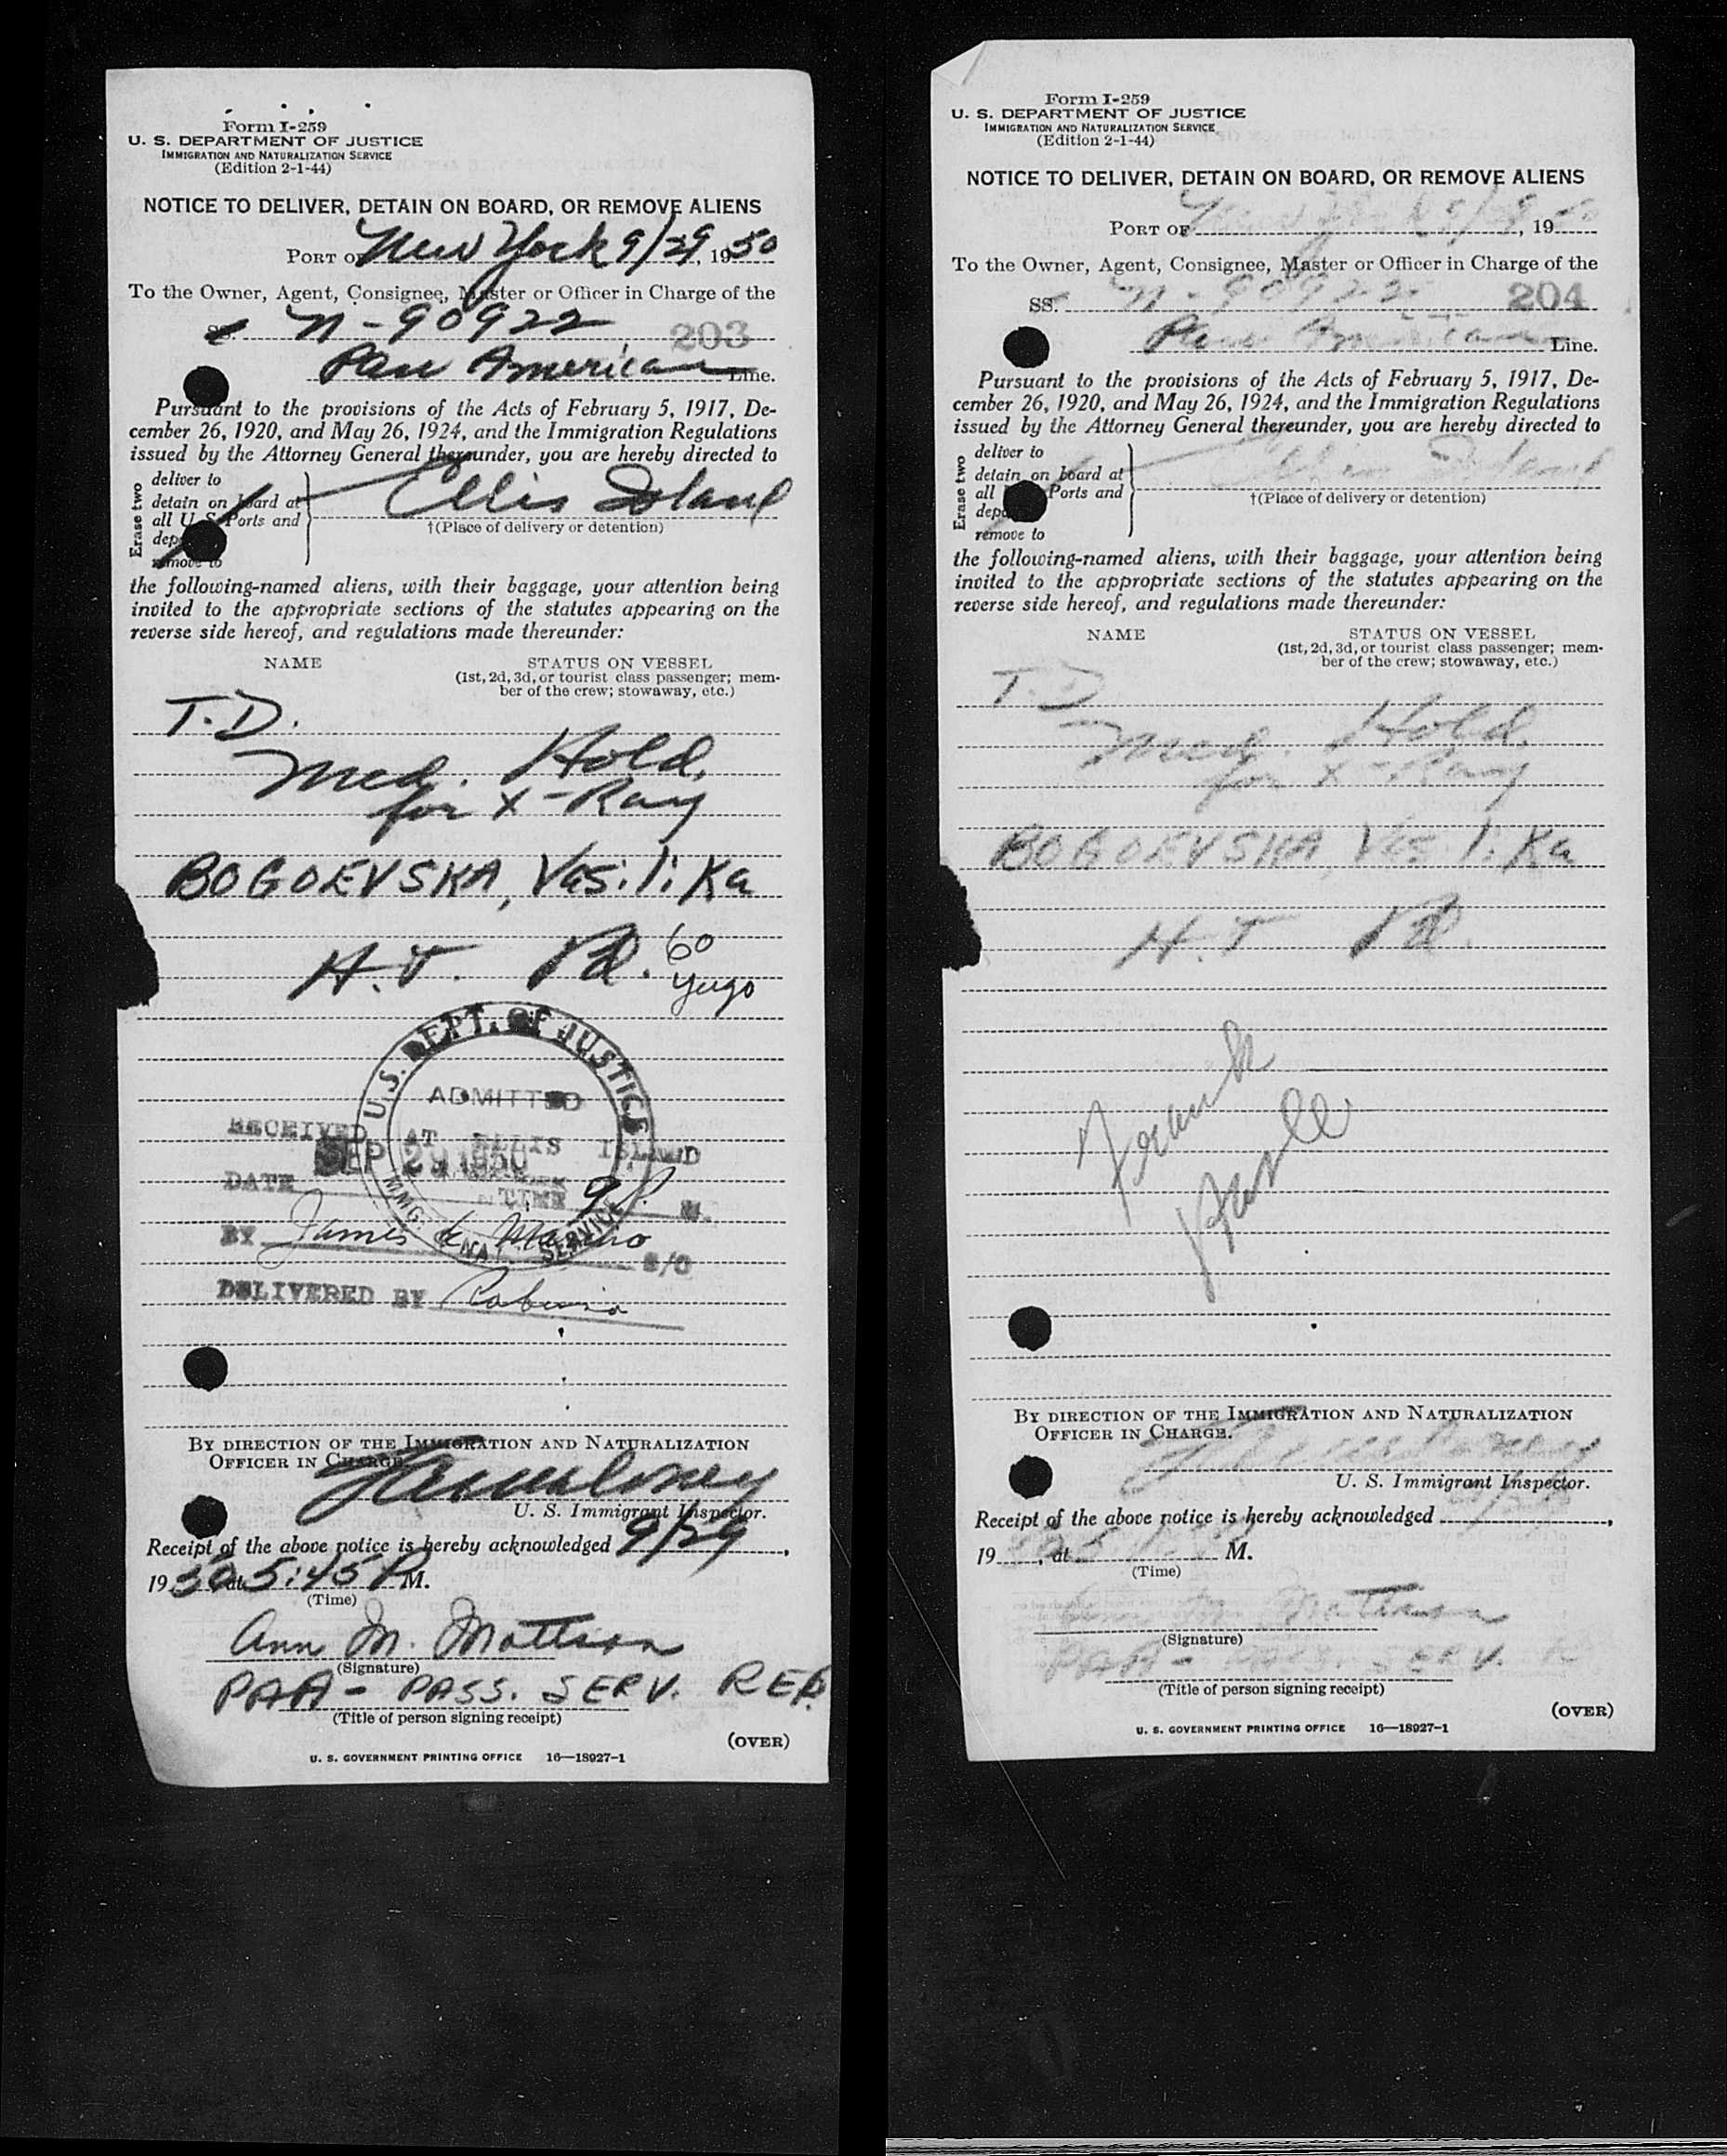 Form I-259
U. S. DEPARTMENT OF JUSTICE
IMMIGRATION AND NATURALIZATION SERVICE
(Edition 2-1-44)
NOTICE TO DELIVER, DETAIN ON BOARD, OR REMOVE ALIENS
PORT OF New York 9/29, 1950
To the Owner, Agent, Consignee, Master or Officer in Charge of the
N-90922 203
Pan American Line.
Pursuant to the provisions of the Acts of February 5, 1917, De-
cember 26, 1920, and May 26, 1924, and the Immigration Regulations
issued by the Attorney General thereunder, you are hereby directed to
Erase two
deliver to
detain on board at
all U.S. Ports and
remove to
Ellis Island
†(Place of delivery or detention)
the following-named aliens, with their baggage, your attention being
invited to the appropriate sections of the statutes appearing on the
reverse side hereof, and regulations made thereunder:
NAME STATUS ON VESSEL
(1st, 2d, 3d, or tourist class passenger; mem-
ber of the crew; stowaway, etc.)
T.D.
Med. Hold.
for X-Ray
BOGOEVSKA, Vasilika
H.T. Pd. 60
Yugo
U.S. DEPT. OF JUSTICE
ADMITTED
RECEIVED AT ELLIS ISLAND
DATE SEP 29 1950
TIME 9 P. M.
IMMG. & NAT. SERVICE
BY James
S/O
DELIVERED BY
BY DIRECTION OF THE IMMIGRATION AND NATURALIZATION
OFFICER IN CHARGE.
U. S. Immigrant Inspector.
Receipt of the above notice is hereby acknowledged 9/29,
1950, at 5:45 P M.
(Time)
Ann M. Mattson
(Signature)
PAA - PASS. SERV. REP.
(Title of person signing receipt)
(OVER)
U. S. GOVERNMENT PRINTING OFFICE 16—18927-1
Form I-259
U. S. DEPARTMENT OF JUSTICE
IMMIGRATION AND NATURALIZATION SERVICE
(Edition 2-1-44)
NOTICE TO DELIVER, DETAIN ON BOARD, OR REMOVE ALIENS
PORT OF New York 9/29, 1950
To the Owner, Agent, Consignee, Master or Officer in Charge of the
SS. N-90922 204
Pan American Line.
Pursuant to the provisions of the Acts of February 5, 1917, De-
cember 26, 1920, and May 26, 1924, and the Immigration Regulations
issued by the Attorney General thereunder, you are hereby directed to
Erase two
deliver to
detain on board at
all Ports and
remove to
Ellis Island
†(Place of delivery or detention)
the following-named aliens, with their baggage, your attention being
invited to the appropriate sections of the statutes appearing on the
reverse side hereof, and regulations made thereunder:
NAME STATUS ON VESSEL
(1st, 2d, 3d, or tourist class passenger; mem-
ber of the crew; stowaway, etc.)
T.D
Med. Hold.
for X-Ray
BOGOEVSKA, Vasilika
H.T Pd.
BY DIRECTION OF THE IMMIGRATION AND NATURALIZATION
OFFICER IN CHARGE.
U. S. Immigrant Inspector.
Receipt of the above notice is hereby acknowledged 9/29,
1950, at M.
(Time)
Ann M. Mattson
(Signature)
PAA - PASS. SERV.
(Title of person signing receipt)
(OVER)
U. S. GOVERNMENT PRINTING OFFICE 16—18927-1